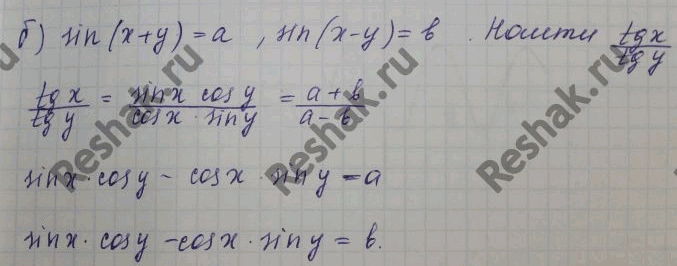 б) sin(x+y) = a , sin(x-y) = b . Найти tgx/tgy
tgx/tgy = sinx cosy/cosx · siny = a+b/a-b
sinx · cosy - cosx · siny = a
sinx · cosy - cosx · siny = b.
Reshak.ru
Reshak.ru
Reshak.ru
Reshak.ru